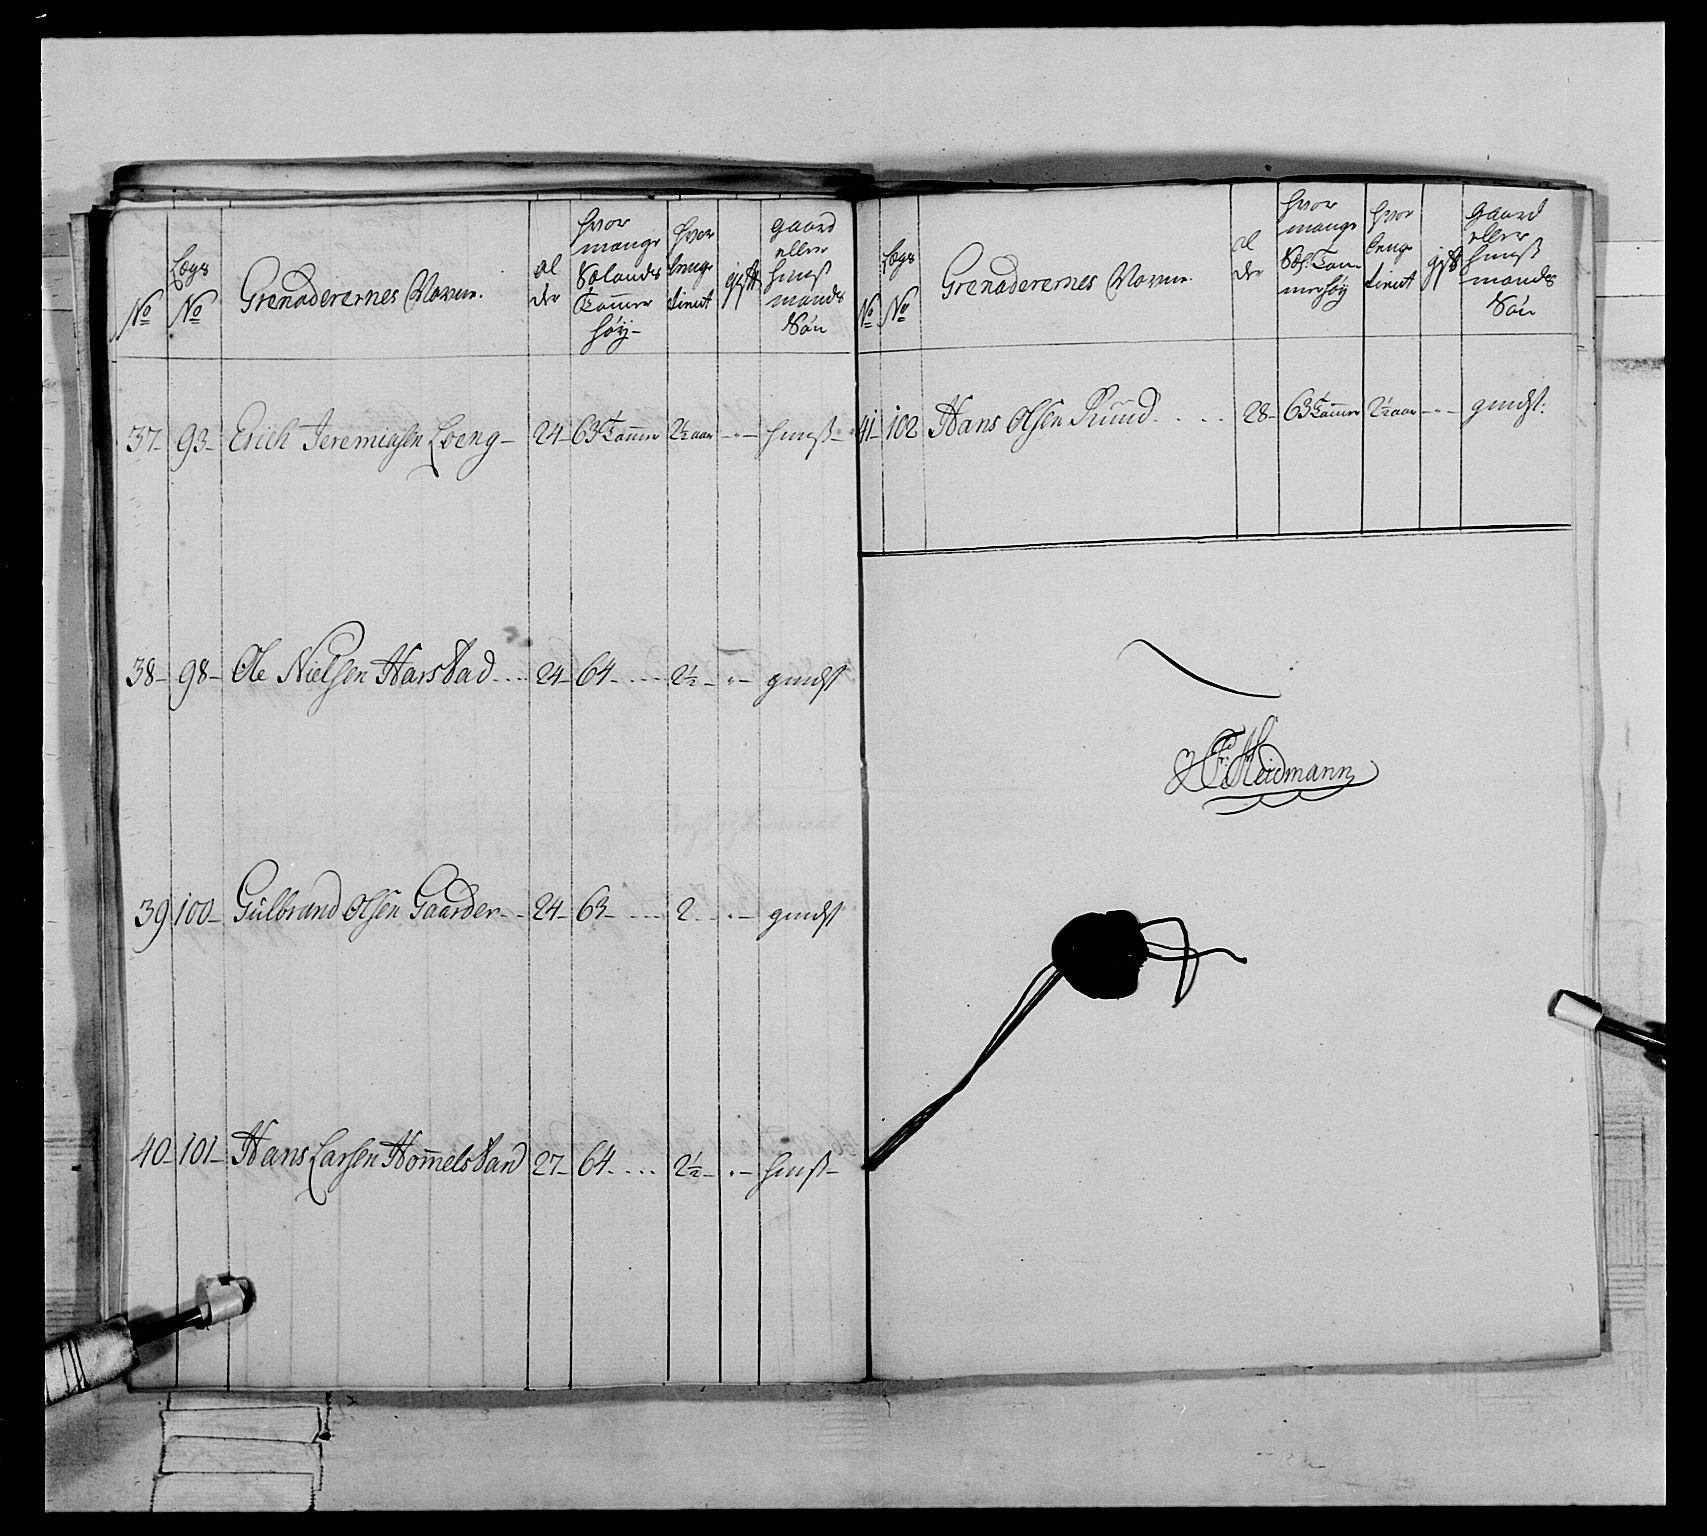 No
Legs No
Grenaderernes Navne.
al der
hvor mange Sølands Tommer høy
hvor lenge tient
gift
gaard eller huus mands Søn
37 93 Erich Jeremiasen Loeng 24 63 Tommer 2½ aar - huusm
38 98 Ole Nielsen Harstad 24 64 2½ - gmdst
39 100 Gulbrand Olsen Gaarder 24 63 2 - gmdst
40 101 Hans Larsen Hommelstad 27 64 2½ - huus
No
Legs No
Grenaderernes Navne.
al der
hvor mange Søl: Tommer høy
hvor lenge tient
gift
gaard eller huus mands Søn
41 102 Hans Olsen Ruud 28 63 Tommer 2½ aar - gmdst:
Heidmann